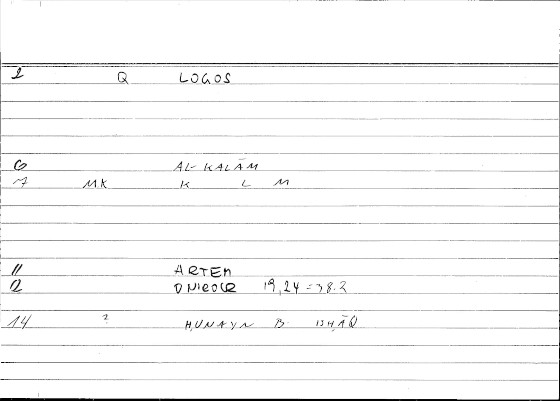 2 Q LOGOS
6 AL-KALĀM
7 MK K L M
11 ARTEM
12 19,24 = 38.2
14 ? ḤUNAYN B. ISḤĀQ